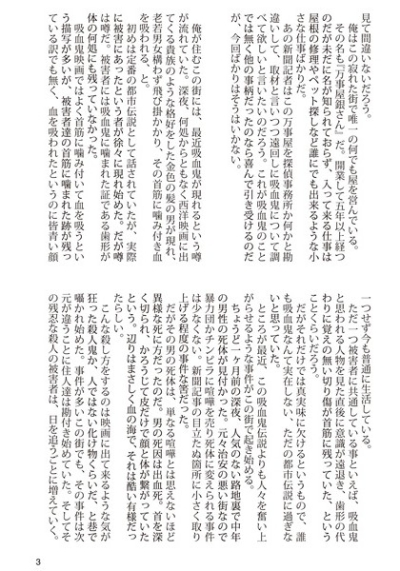 見て間違いないだろう。
俺はこの寂れた街で唯一の何でも屋を営んでいる。
その名も「万事屋銀さん」だ。開業して五年以上経つ
のだが未だに名が知られておらず、入って来る仕事は
屋根の修理やペット探しなど誰にでも出来るような小
さな仕事ばかりだ。
あの新聞記者はこの万事屋を探偵事務所か何かと勘
違いして、取材と言いつつ遠回しに吸血鬼について調
べて欲しいと言いたいのだろう。これが吸血鬼のこと
では無く他の事柄だったのなら喜んで引き受けるのだ
が、今回ばかりはそうはいかない。
俺が住むこの街には、最近吸血鬼が現れるという噂
が流れていた。深夜、何処からともなく西洋映画に出
てくる貴族のような格好をした金色の髪の男が現れ、
老若男女構わず飛び掛かり、その首筋に噛み付き血
を吸われる、と。
初めは定番の都市伝説として話されていたが、実際
に被害にあったという者が徐々に現れ始めた。だが噂
は噂だ。被害者には吸血鬼に噛まれた証である歯形が
体の何処にも残っていなかった。
吸血鬼映画ではよく首筋に噛み付いて血を吸うとい
う描写が多いが、被害者達の首筋に噛まれた跡が残っ
ている訳でも無く、血を吸われたというのに皆青い顔
一つせず今も普通に生活している。
ただ一つ被害者に共通している事といえば、吸血鬼
と思われる人物を見た直後に意識が遠退き、歯形の代
わりに覚えの無い切り傷が首筋に残っていた、という
ことくらいだろう。
だがそれだけでは真実味に欠けるというもので、誰
も吸血鬼なんて実在しない、ただの都市伝説に過ぎな
いと思っていた。
ところが最近、この吸血鬼伝説よりも人々を奮い上
がらせるような事件がこの街で起き始める。
ちょうど一ヶ月前の深夜、人気のない路地裏で中年
の男性の死体が見付かった。元々治安の悪い街なので
暴力団かチンピラに喧嘩を売り死体に変えられる事件
は少なくない。新聞記事の目立たぬ箇所に小さく取り
上げる程度の事件な筈だった。
だがその男の死体は、単なる喧嘩とは思えないほど
異様な死に方だったのだ。男の死因は出血死。首を深
く切られ、かろうじて皮だけで顔と体が繋がっていた
という。辺りはまさしく血の海で、それは酷い有様だっ
たらしい。
こんな殺し方をするのは映画に出て来るような気が
狂った殺人鬼か、人ではない化け物くらいだ、と巷で
囁かれ始めた。事件が多いこの街でも、その事件は次
元が違うことに住人達は勘付き始めていた。そしてそ
の残忍な殺人の被害者は、日を追うごとに増えていく。
3